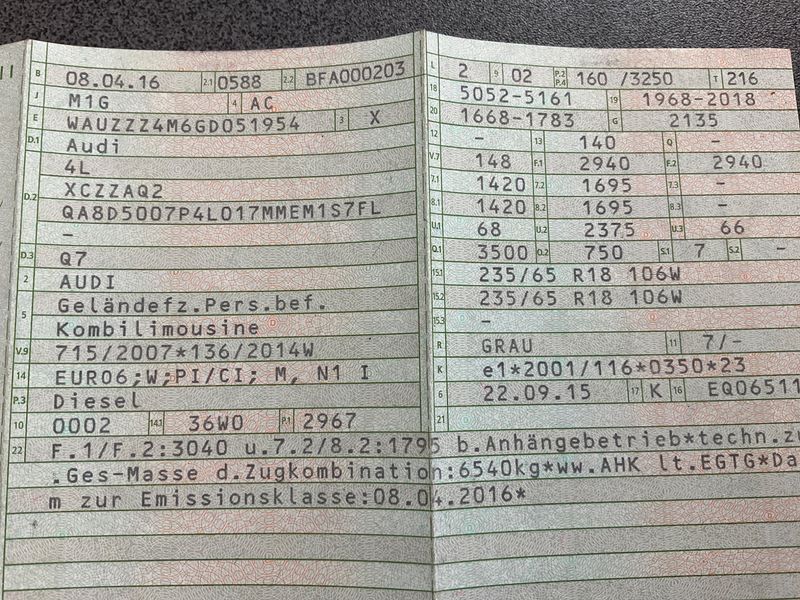 B 08.04.16 2.1 0588 2.2 BFA000203
J M1G 4 AC
E WAUZZZ4M6GD051954 3 X
D.1 Audi
4L
D.2 XCZZAQ2
QA8D5007P4L017MMEM1S7FL
-
D.3 Q7
2 AUDI
5 Geländefz.Pers.bef.
Kombilimousine
V.9 715/2007*136/2014W
14 EURO6;W;PI/CI; M, N1 I
P.3 Diesel
10 0002 14.1 36W0 P.1 2967
L 2 9 02 P.2 P.4 160 /3250 T 216
18 5052-5161 19 1968-2018
20 1668-1783 G 2135
12 - 13 140 Q -
V.7 148 F.1 2940 F.2 2940
7.1 1420 7.2 1695 7.3 -
8.1 1420 8.2 1695 8.3 -
U.1 68 U.2 2375 U.3 66
O.1 3500 O.2 750 S.1 7 S.2 -
15.1 235/65 R18 106W
15.2 235/65 R18 106W
15.3 -
R GRAU 11 7/-
K e1*2001/116*0350*23
6 22.09.15 17 K 16 EQ06511
21
22 F.1/F.2:3040 u.7.2/8.2:1795 b.Anhängebetrieb*techn.z
.Ges-Masse d.Zugkombination:6540kg*ww.AHK lt.EGTG*Da
m zur Emissionsklasse:08.04.2016*